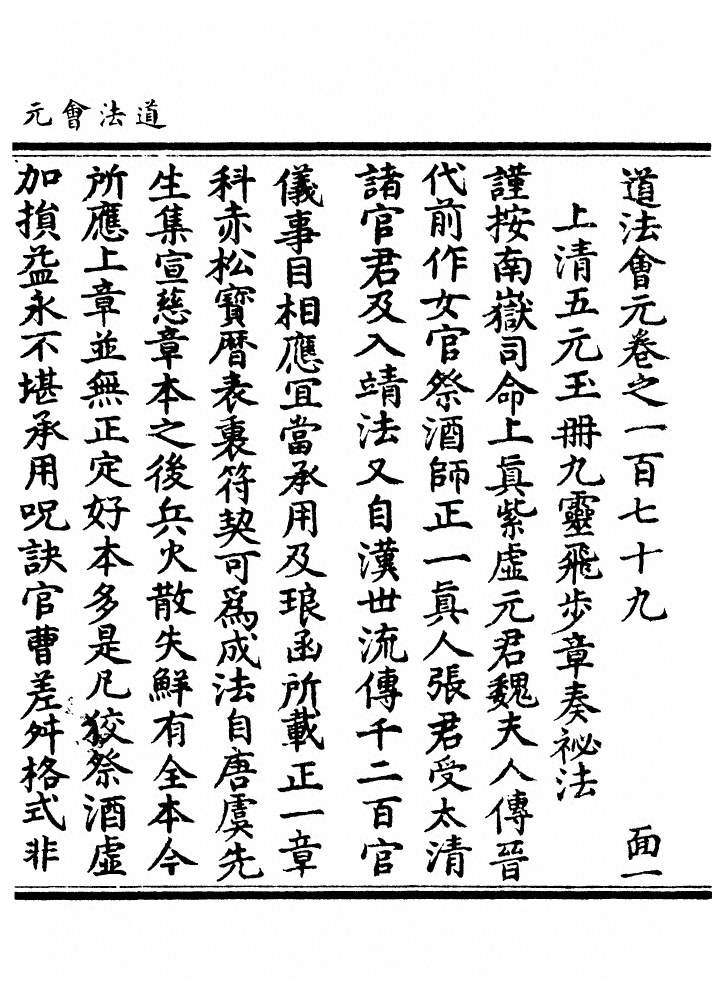 道法會元
道法會元卷之一百七十九　面一
上清五元玉冊九靈飛步章奏祕法
謹按南嶽司命上眞紫虛元君魏夫人傳晉
代前作女官祭酒師正一眞人張君受太清
諸官君及入靖法又自漢世流傳千二百官
儀事目相應宜當承用及琅函所載正一章
科赤松寶曆表裏符契可爲成法自唐虞先
生集宣慈章本之後兵火散失鮮有全本今
所應上章並無正定好本多是凡狡祭酒虛
加損益永不堪承用呪訣官曹差舛格式非